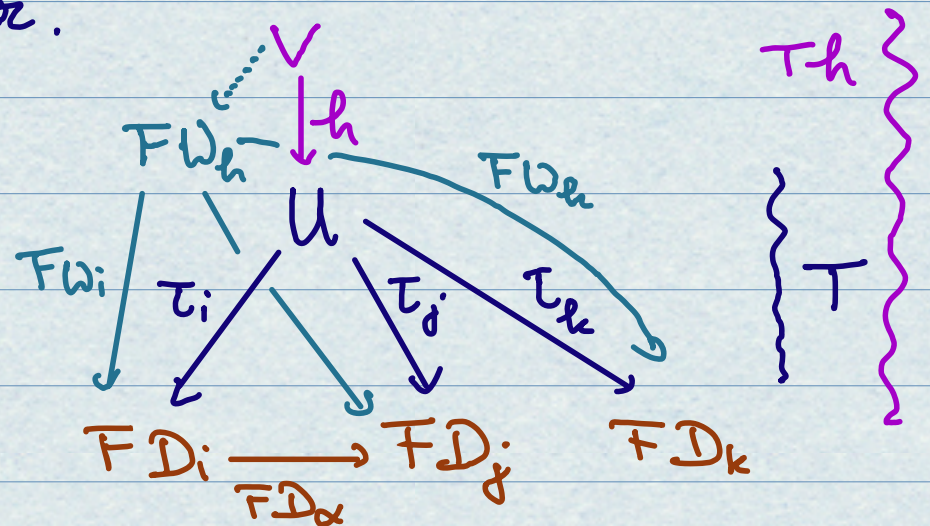 r.
V
Th
h
FW_h
FW_k
U
FW_i
τ_i
τ_j
τ_k
T
FD_i
FD_j
FD_k
FD_α